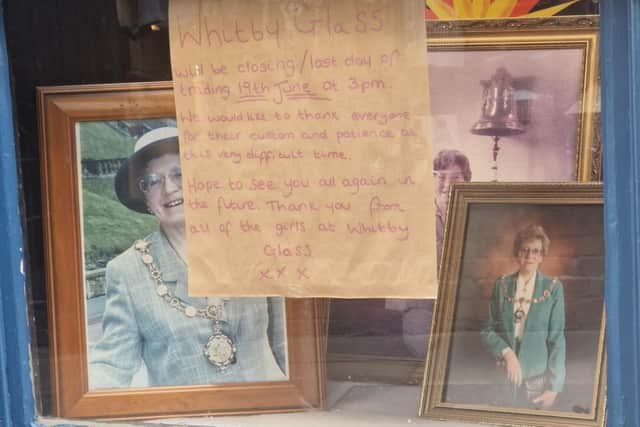 Whitby Glass
will be closing/last day of
trading 19th June at 3pm.
We would like to thank everyone
for their custom and patience at
this very difficult time.
Hope to see you all again in
the future. Thank you from
all of the girls at Whitby
Glass
x x x